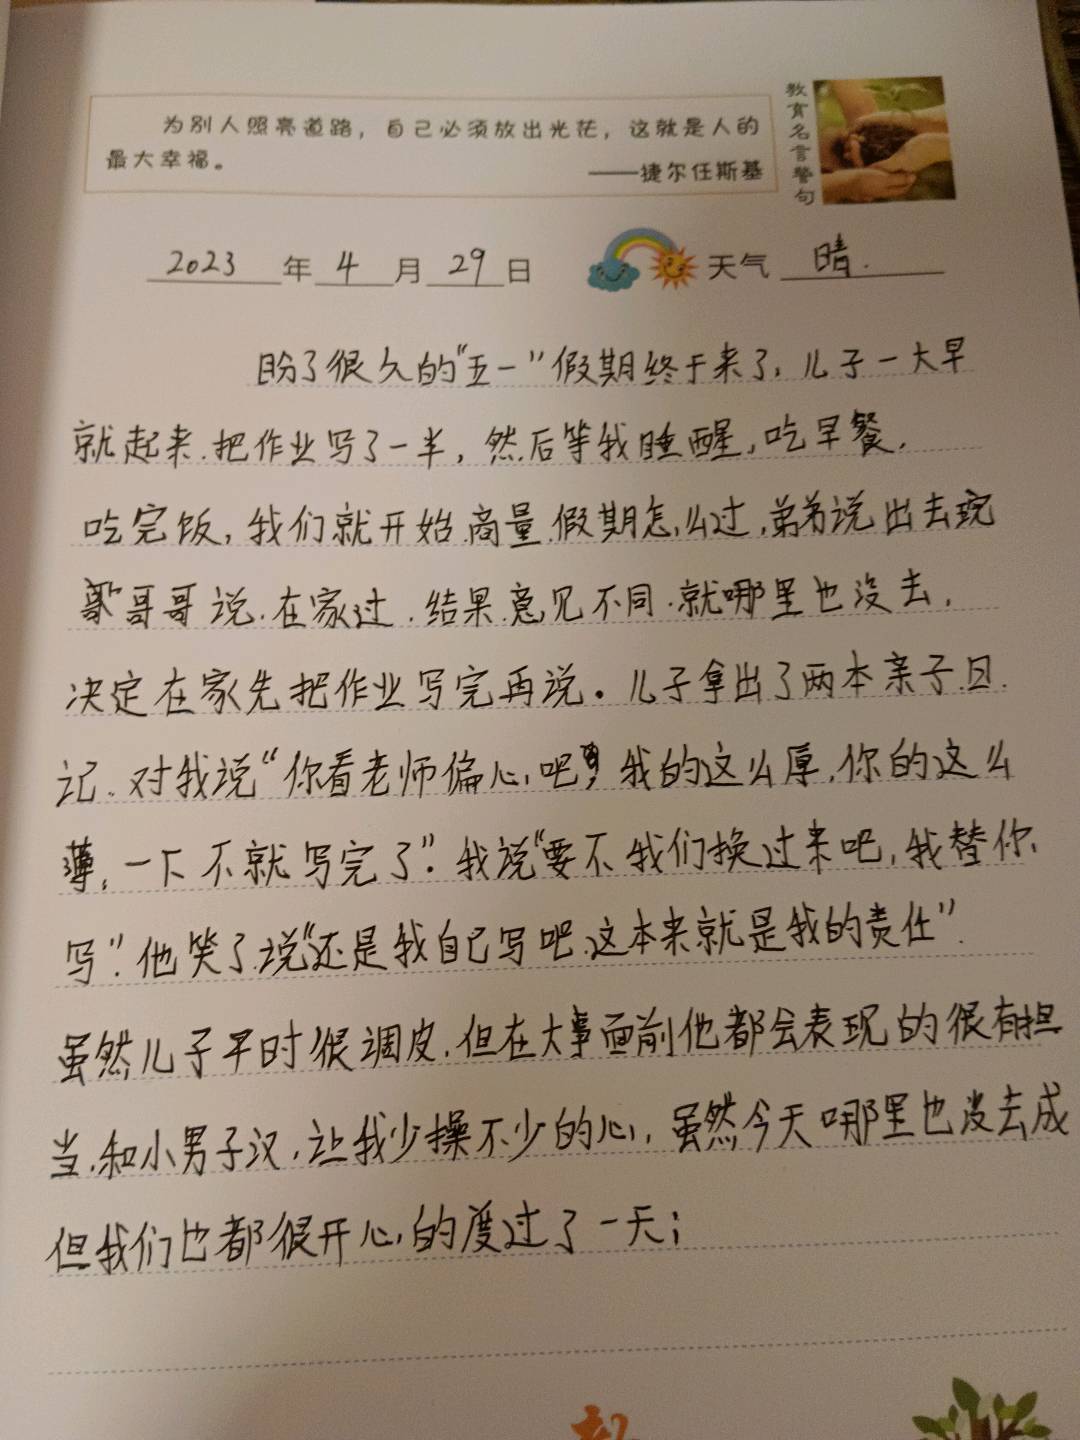 为别人照亮道路，自己必须放出光芒，这就是人的
最大幸福。
——捷尔任斯基
教育名言警句
2023年4月29日 天气 晴.
盼了很久的“五一”假期终于来了，儿子一大早
就起来.把作业写了一半，然后等我睡醒，吃早餐.
吃完饭，我们就开始商量.假期怎么过，弟弟说出去玩
哥哥说.在家过.结果意见不同.就哪里也没去，
决定在家先把作业写完再说。儿子拿出了两本亲子日.
记、对我说“你看老师偏心吧，我的这么厚，你的这么
薄，一下不就写完了”.我说“要不我们换过来吧，我替你
写”.他笑了.说“还是我自己写吧.这本来就是我的责任”.
虽然儿子平时很调皮.但在大事面前他都会表现的很有担
当.和小男子汉，让我少操不少的心，虽然今天哪里也没去成
但我们也都很开心的度过了一天；